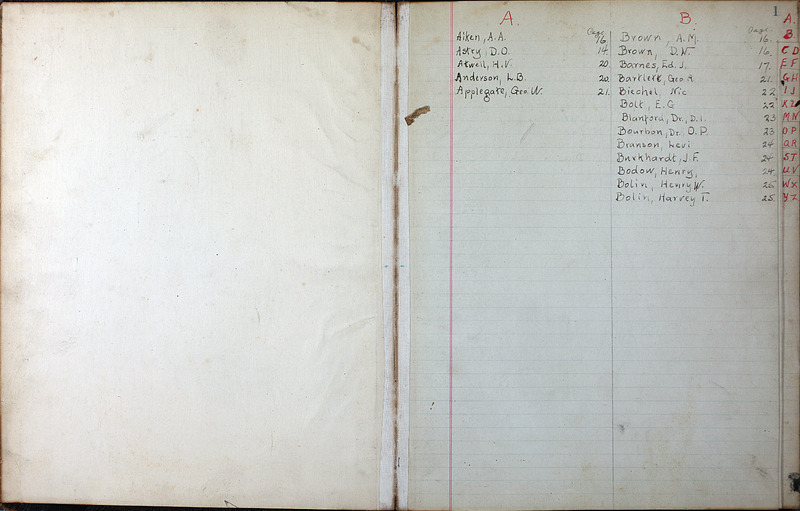 1
A.
Page
Aiken, A.A. 16.
Astry, D.O. 14.
Atwell, H.V. 20.
Anderson, L.B. 20.
Applegate, Geo. W. 21.
B.
Page
Brown, A.M. 16.
Brown, D.N. 16.
Barnes, Ed. J. 17.
Bartlett, Geo. A. 21.
Biechel, Nic 22
Bolt, E.G 22
Blanford, Dr. D.I. 23
Bourbon, Dr. O.P. 23
Branson, Levi 24
Burkhardt, J.F. 24
Bodow, Henry, 24.
Bolin, Henry W. 25.
Bolin, Harvey T. 25.
A.
B
C D
E F
G H
I J
K L
M N
O P
Q R
S T
U V
W X
Y Z